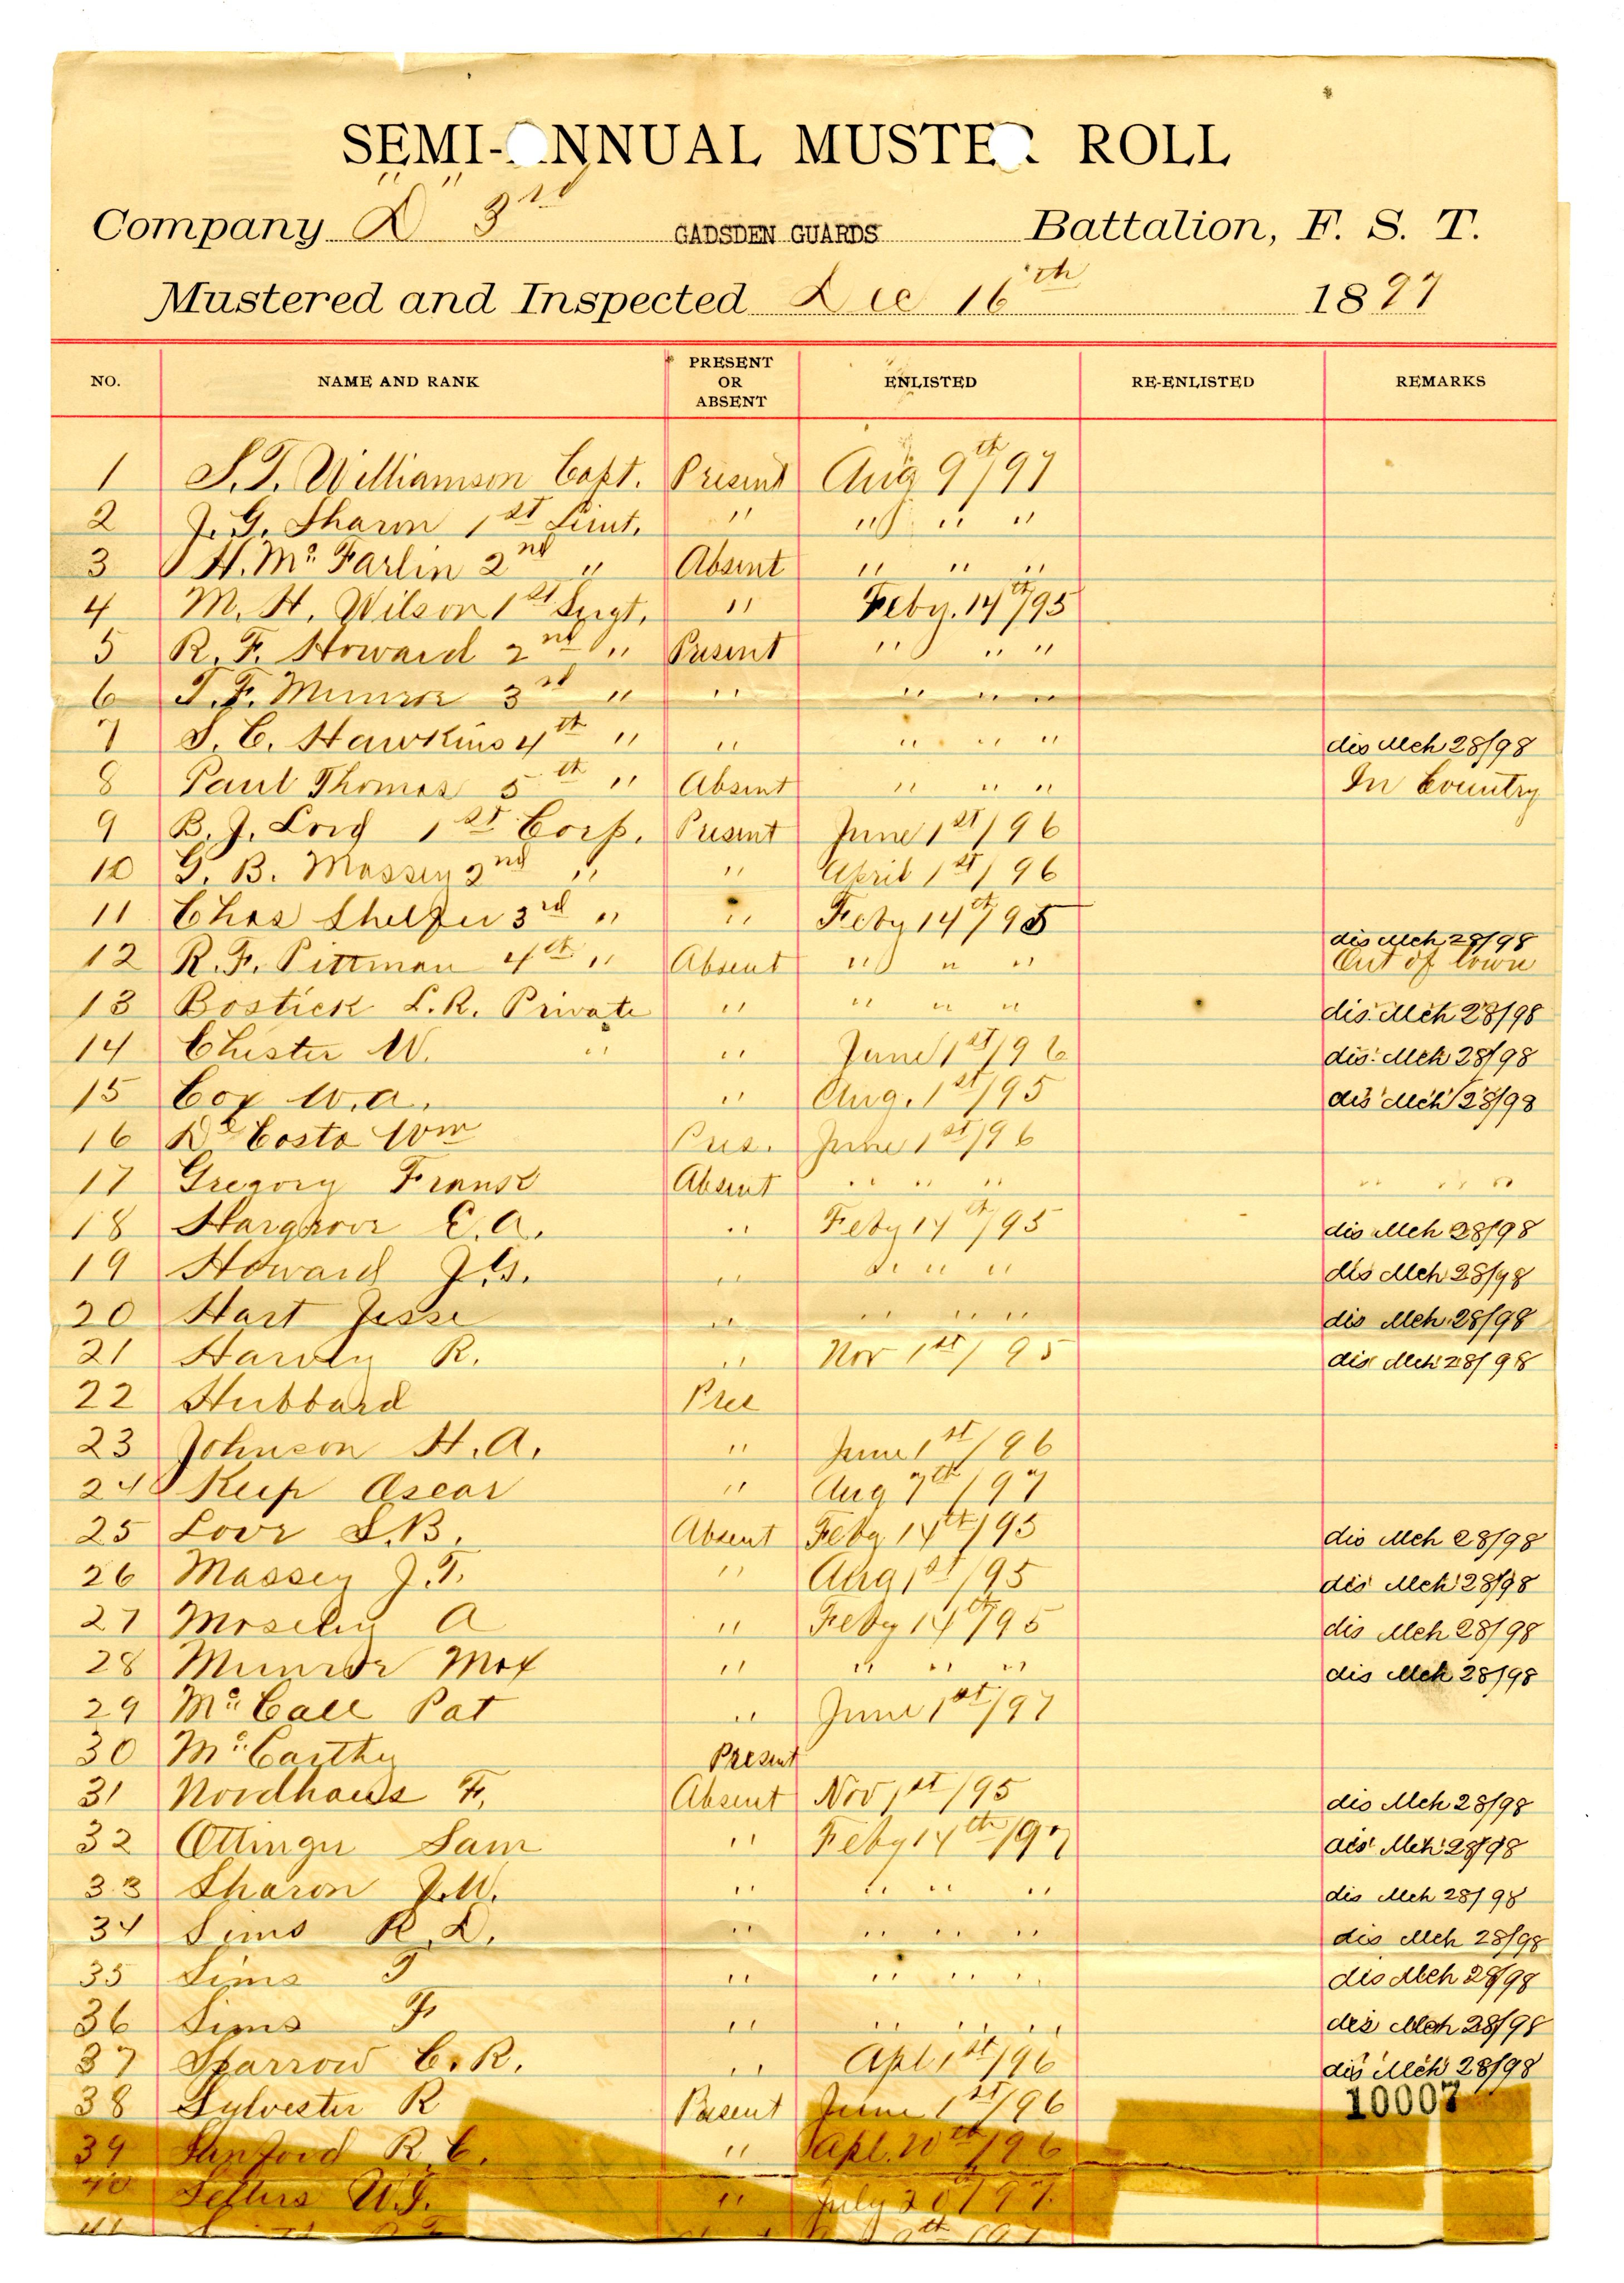 SEMI-ANNUAL MUSTER ROLL
Company "D" 3rd GADSDEN GUARDS Battalion, F. S. T.
Mustered and Inspected Dec 16th 1897
NO. NAME AND RANK PRESENT OR ABSENT ENLISTED RE-ENLISTED REMARKS
1 S.T. Williamson Capt. Present Aug 9th/97
2 J.G. Sharon 1st Lieut. " " " "
3 H. Mc Farlin 2nd " Absent " " "
4 M. H. Wilson 1st Sergt. " Feby. 14th/95
5 R. F. Howard 2nd " Present " " "
6 T. F. Munroe 3rd " " " " "
7 S. C. Hawkins 4th " " " " " dis Mch 28/98
8 Paul Thomas 5th " Absent " " " In Country
9 B. J. Lord 1st Corp. Present June 1st/96
10 G. B. Massey 2nd " " April 1st/96
11 Chas Shelfer 3rd " " Feby 14th/95
dis Mch 28/98
12 R. F. Pittman 4th " Absent " " " Out of town
13 Bostick L. R. Private " " " " dis. Mch 28/98
14 Chester W. " " June 1st/96 dis. Mch 28/98
15 Cox W. A. " Aug. 1st/95 dis Mch 28/98
16 De Costa Wm Pres. June 1st/96
17 Gregory Frank Absent " " " " " "
18 Hargrove E. A. " Feby 14th/95 dis Mch 28/98
19 Howard J. G. " " " " dis Mch 28/98
20 Hart Jesse " " " " dis Mch 28/98
21 Harvey R. " Nov 1st/95 dis Mch 28/98
22 Hubbard Pres
23 Johnson H. A. " June 1st/96
24 Keep Oscar " Aug 7th/97
25 Love S. B. Absent Feby 14th/95 dis Mch 28/98
26 Massey J. T. " Aug 1st/95 dis Mch 28/98
27 Moseley A " Feby 14th/95 dis Mch 28/98
28 Munroe Max " " " " dis Mch 28/98
29 Mc Call Pat " June 1st/97
30 Mc Carthy Present
31 Nordhaus F. Absent Nov 1st/95 dis Mch 28/98
32 Ottinger Sam " Feby 14th/97 dis Mch 28/98
33 Sharon J. W. " " " " dis Mch 28/98
34 Sims R. D. " " " " dis Mch 28/98
35 Sims T " " " " dis Mch 28/98
36 Sims F " " " " dis Mch 28/98
37 Sparrow C. R. " Apl 1st/96 dis Mch 28/98
38 Sylvester R Present June 1st/96 10007
39 Sanford R. C. " Apl. 20th/96
40 Sellers W. J. " July 20th/97
41